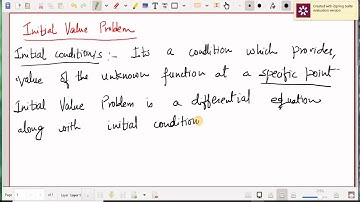 Initial Value Problem
Initial condition/s :- Its a condition which provides,
value of the unknown function at a specific point
Initial Value Problem is a differential equation
along with initial condition
Created with iSpring Suite
evaluation version